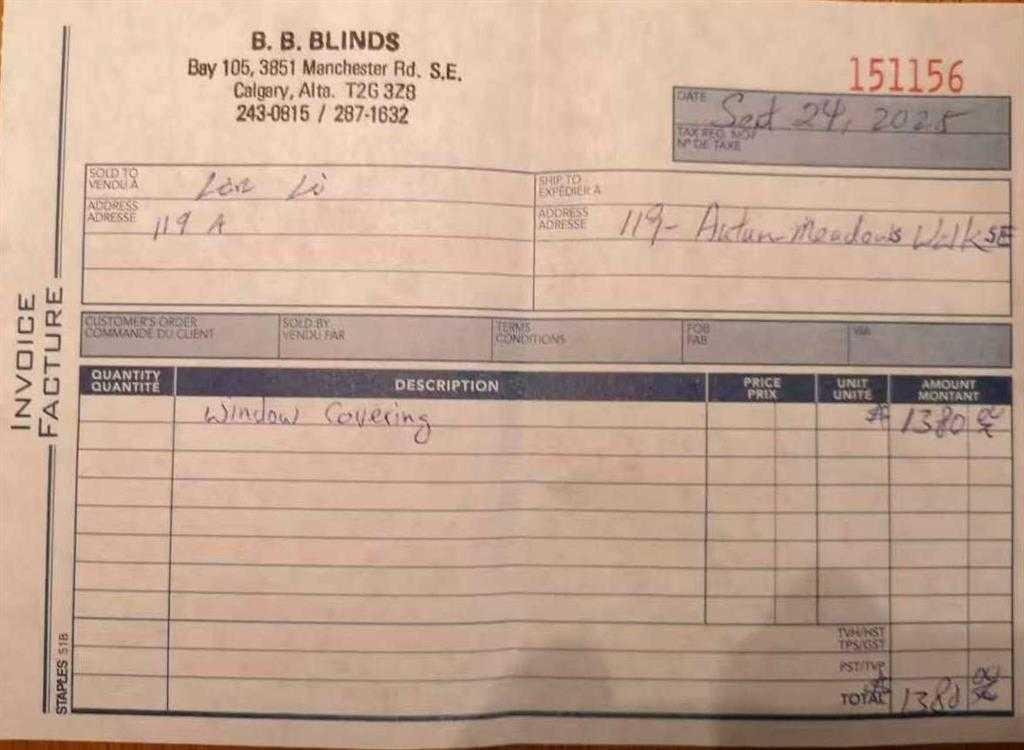 B. B. BLINDS
Bay 105, 3851 Manchester Rd. S.E.
Calgary, Alta. T2G 3Z8
243-0815 / 287-1632
151156
DATE Sept 24, 2025
TAX REG. NO.
Nº DE TAXE
SOLD TO
VENDU À
Li
ADDRESS
ADRESSE
119 A
SHIP TO
EXPÉDIER À
ADDRESS
ADRESSE
119- Autun Meadows Walk SE
INVOICE
FACTURE
CUSTOMER'S ORDER
COMMANDE DU CLIENT
SOLD BY
VENDU PAR
TERMS
CONDITIONS
FOB
FAB
VIA
QUANTITY
QUANTITÉ
DESCRIPTION
PRICE
PRIX
UNIT
UNITÉ
AMOUNT
MONTANT
Window Covering 1380
TVH/HST
TPS/GST
PST/TVP
TOTAL 1380
STAPLES 51B